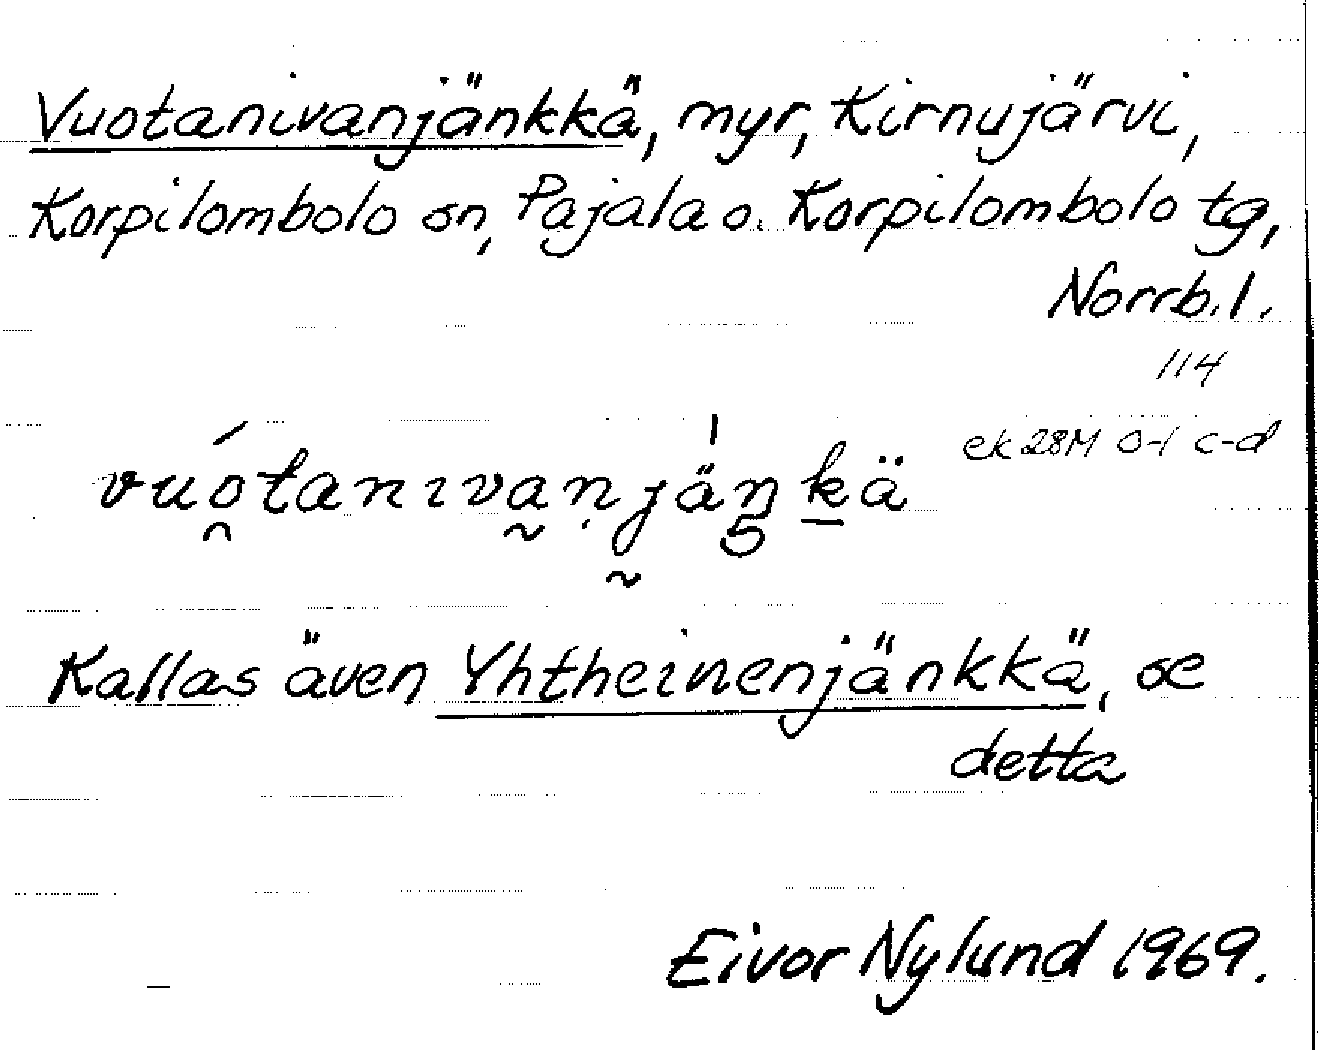 Vuotanivanjänkkä, myr, Kirnujärvi,
Korpilombolo sn, Pajala o. Korpilombolo tg,
Norrb. l.
114
ek 28M 0-1 c-d
vuó̯tanıva̰ṇj̰ä̍ŋḵä
Kallas även Yhtheinenjänkkä, se
detta
Eivor Nylund 1969.